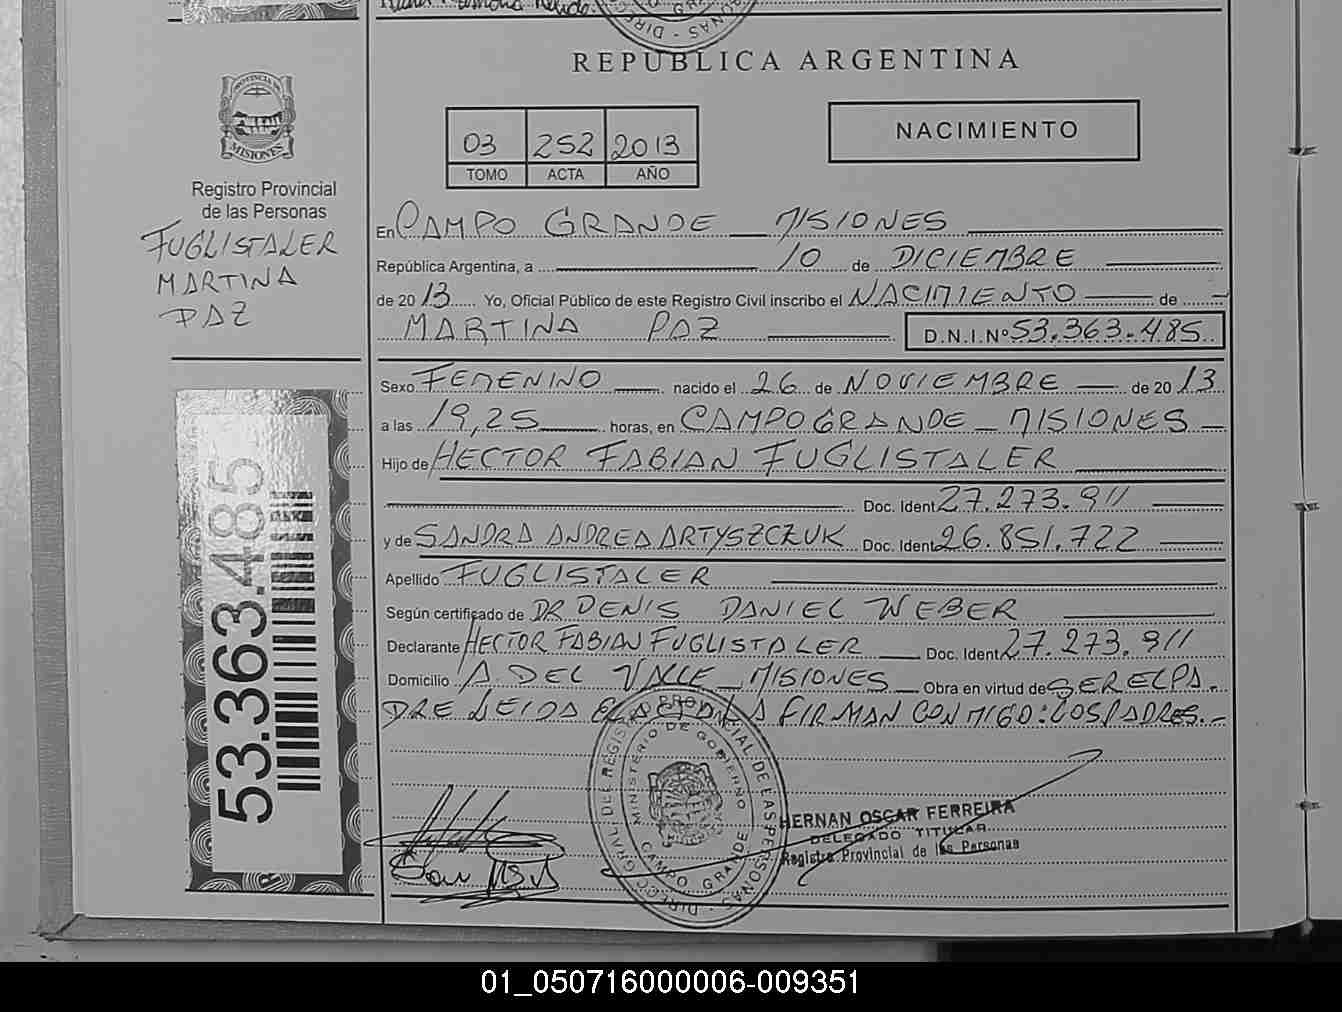 REPUBLICA ARGENTINA
PROVINCIA DE
MISIONES
Registro Provincial
de las Personas
FUGLISTALER
MARTINA
PAZ
53.363.485
03 252 2013
TOMO ACTA AÑO
NACIMIENTO
En CAMPO GRANDE MISIONES
República Argentina, a 10 de DICIEMBRE
de 2013 Yo, Oficial Público de este Registro Civil inscribo el NACIMIENTO de
MARTINA PAZ D.N.I.Nº 53.363.485
Sexo FEMENINO nacido el 26 de NOVIEMBRE de 2013
a las 19,25 horas, en CAMPO GRANDE MISIONES
Hijo de HECTOR FABIAN FUGLISTALER
Doc. Ident 27.273.911
y de SANDRA ANDREA ARTYSZCZUK Doc. Ident 26.851.722
Apellido FUGLISTALER
Según certificado de DR DENIS DANIEL WEBER
Declarante HECTOR FABIAN FUGLISTALER Doc. Ident 27.273.911
Domicilio A. DEL VALLE MISIONES Obra en virtud de SER EL PA.
DRE LEIDA EL ACTA LA FIRMAN CONMIGO: LOS PADRES.-
DIRECC. GRAL DEL REGISTRO PROVINCIAL DE LAS PERSONAS
MINISTERIO DE GOBIERNO
CAMPO GRANDE
HERNAN OSCAR FERREIRA
DELEGADO TITULAR
Registro Provincial de las Personas
01_050716000006-009351